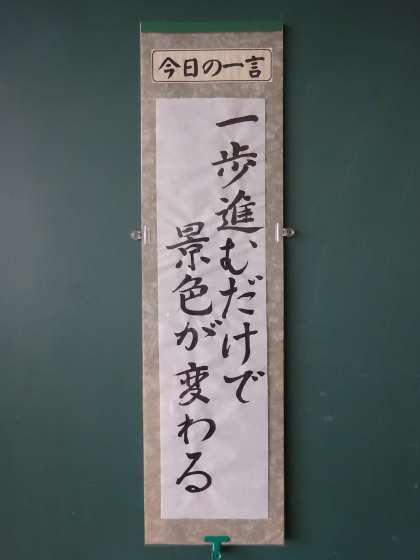 今日の一言
一歩進むだけで
景色が変わる